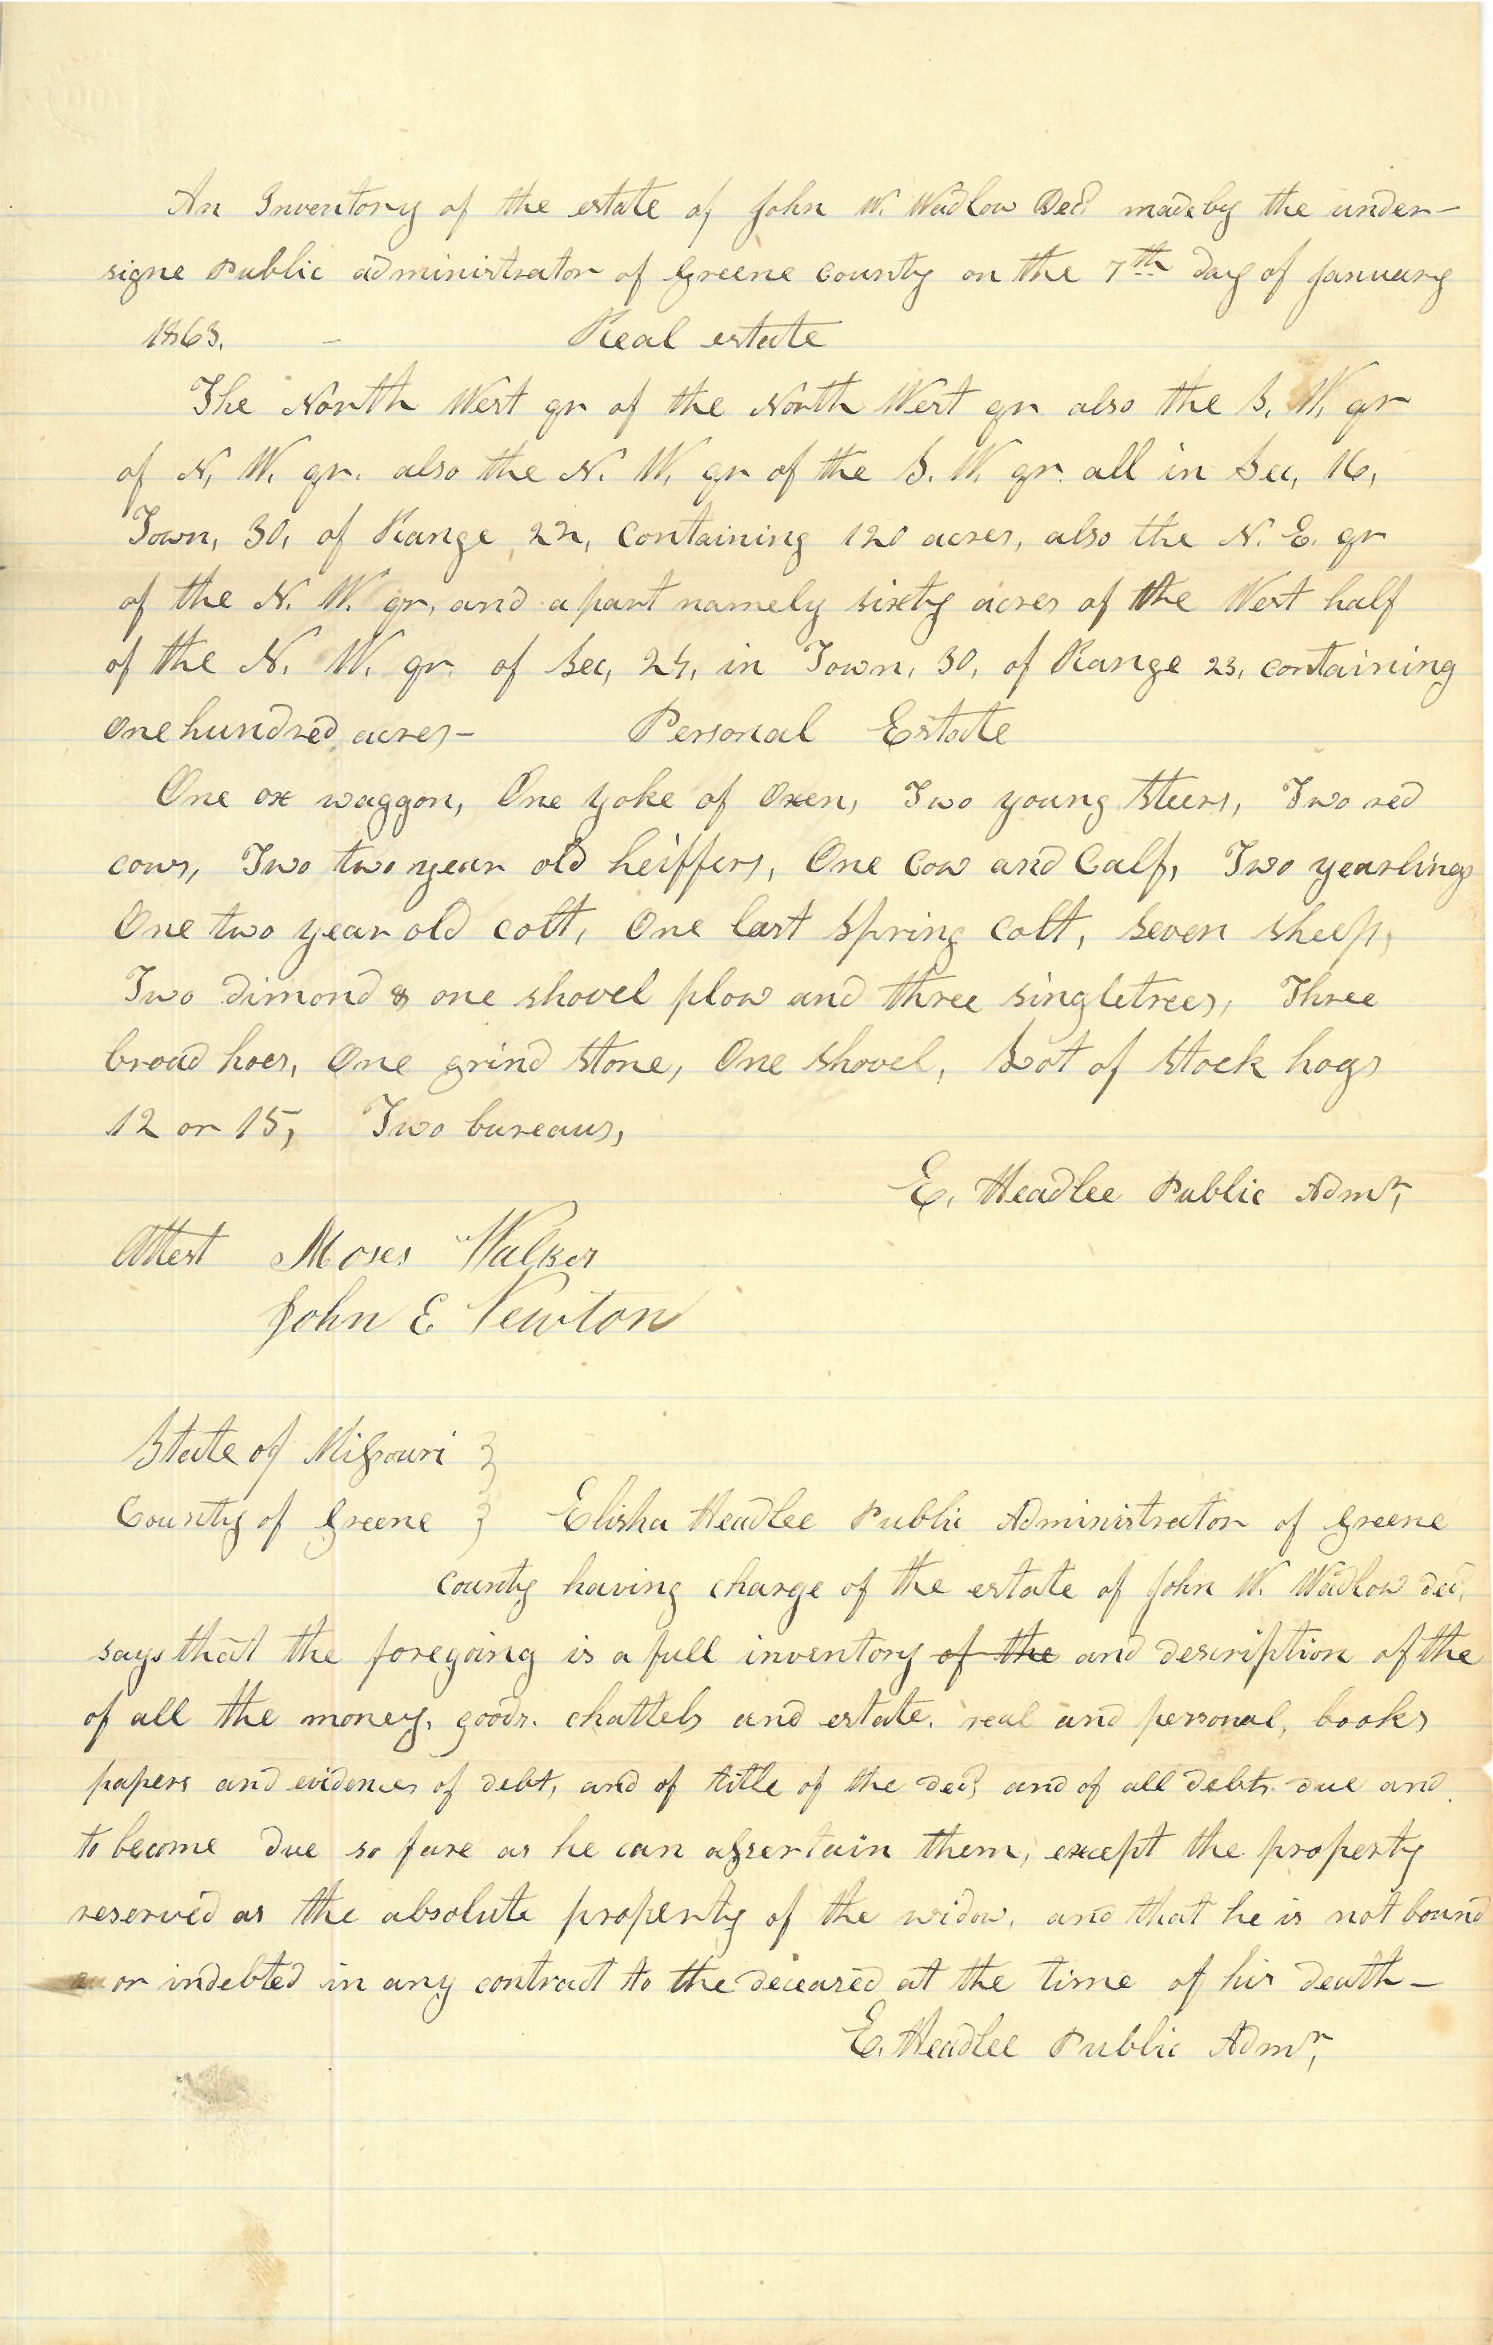 An Inventory of the estate of John W. Wadlow Decd made by the under-
signe Public administrator of Greene County on the 7th day of January
1863. - Real estate
The North West qr of the North West qr also the S. W. qr
of N. W. qr. also the N. W. qr of the S. W. qr. all in Sec, 16,
Town, 30, of Range 22, containing 120 acres, also the N. E. qr
of the N. W. qr, and a part namely sixty acres of the West half
of the N. W. qr. of Sec, 24, in Town, 30, of Range 23, containing
one hundred acres- Personal Estate
One ox waggon, One yoke of Oxen, Two young Steers, Two red
cows, Two two year old heiffers, One Cow and Calf, Two yearlings
One two year old colt, One last Spring Colt, Seven sheep,
Two dimond & one shovel plow and three singletrees, Three
broad hoes, One grind Stone, One Shovel, Lot of Stock hogs
12 or 15, Two bureaus,
E. Headlee Public Admr,
Attest Moses Walker
John E Newton
State of Missouri }
County of Greene } Elisha Headlee Public Administrator of Greene
County having charge of the estate of John W. Wadlow decd,
says that the foregoing is a full inventory of the and description of the
of all the money, goods, chattels and estate, real and personal, books
papers and evidences of debt, and of title of the decd, and of all debts due and
to become due so fare as he can assertain them, except the property
reserved as the absolute property of the widow, and that he is not bound
or indebted in any contract to the deceased at the time of his death-
E. Headlee Public Admr,